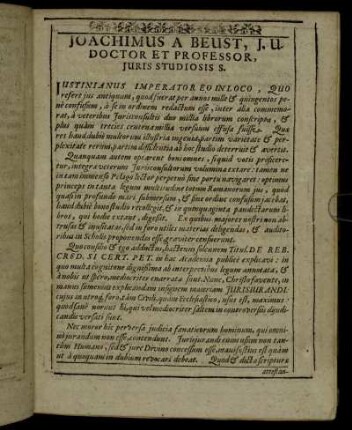 JOACHIMUS A BEUST, J. U.
DOCTOR ET PROFESSOR,
JURIS STUDIOSIS S.
JUSTINIANUS IMPERATOR EO IN LOCO, QUO
refert jus antiquum, quod fuerat per annos mille & quingentos pe-
ne confusum, à se in ordinem redactum esse, inter alia commemo-
rat, à veteribus Jurisconsultis duo millia librorum conscripta, &
plus quàm trecies centena millia versuum effusa fuisse. Qua
res haud dubiè multorum illustria ingenia, partim varietate & per-
plexitate rerum, partim difficultate ab hoc studio deterruit & avertit.
Quanquam autem optarent boni omnes, siquid votis proficere-
tur, integra veterum Jurisconsultorum volumina extare: tamen ne
in eam immenso Pelago lector perpetuò sine portu navigaret: optimus
princeps in tanta legum multitudine totum Romanorum jus, quod
quasi in profundo maris submersum, & sine ordine confusum jacebat,
haud dubiè bono studio recollegit, & in quinquaginta pandectarum li-
bros, qui hodie extant, digessit. Ex quibus majores nostri maximè
usitatas, sed in foro utiles materias delectas, & auditoribus
in Scholis proponendas esse graviter censuerunt.
Quo consilio & ego adductus, hactenus solennem Titul. DE REB.
CRED. SI CERT. PET. in hac Academia publicè explicavi: in
quo multa cognitione dignissima ab interpretibus legum annotata, &
à nobis ut spero, mediocriter enarrata sunt. Nunc, Christo favente, in
manus sumemus explicandam insignem materiam JURISJURANDI.
cujus in utroque foro, tàm Civili, quàm Ecclesiastico, usus est, maximus:
quod sanè norunt hi, qui vel mediocriter saltem in controversiis dijudi-
candis versati sunt.
Nec moror hîc perversa judicia fanaticorum hominum, qui omne
usjurandum non esse à contendunt. Jurisjurandi enim usum non tan-
tùm Humano, sed & jure Divino concessum esse, manifestius est quàm
ut à quoquam in dubium revocari debeat. Quod & dicta scripturæ
attestan-